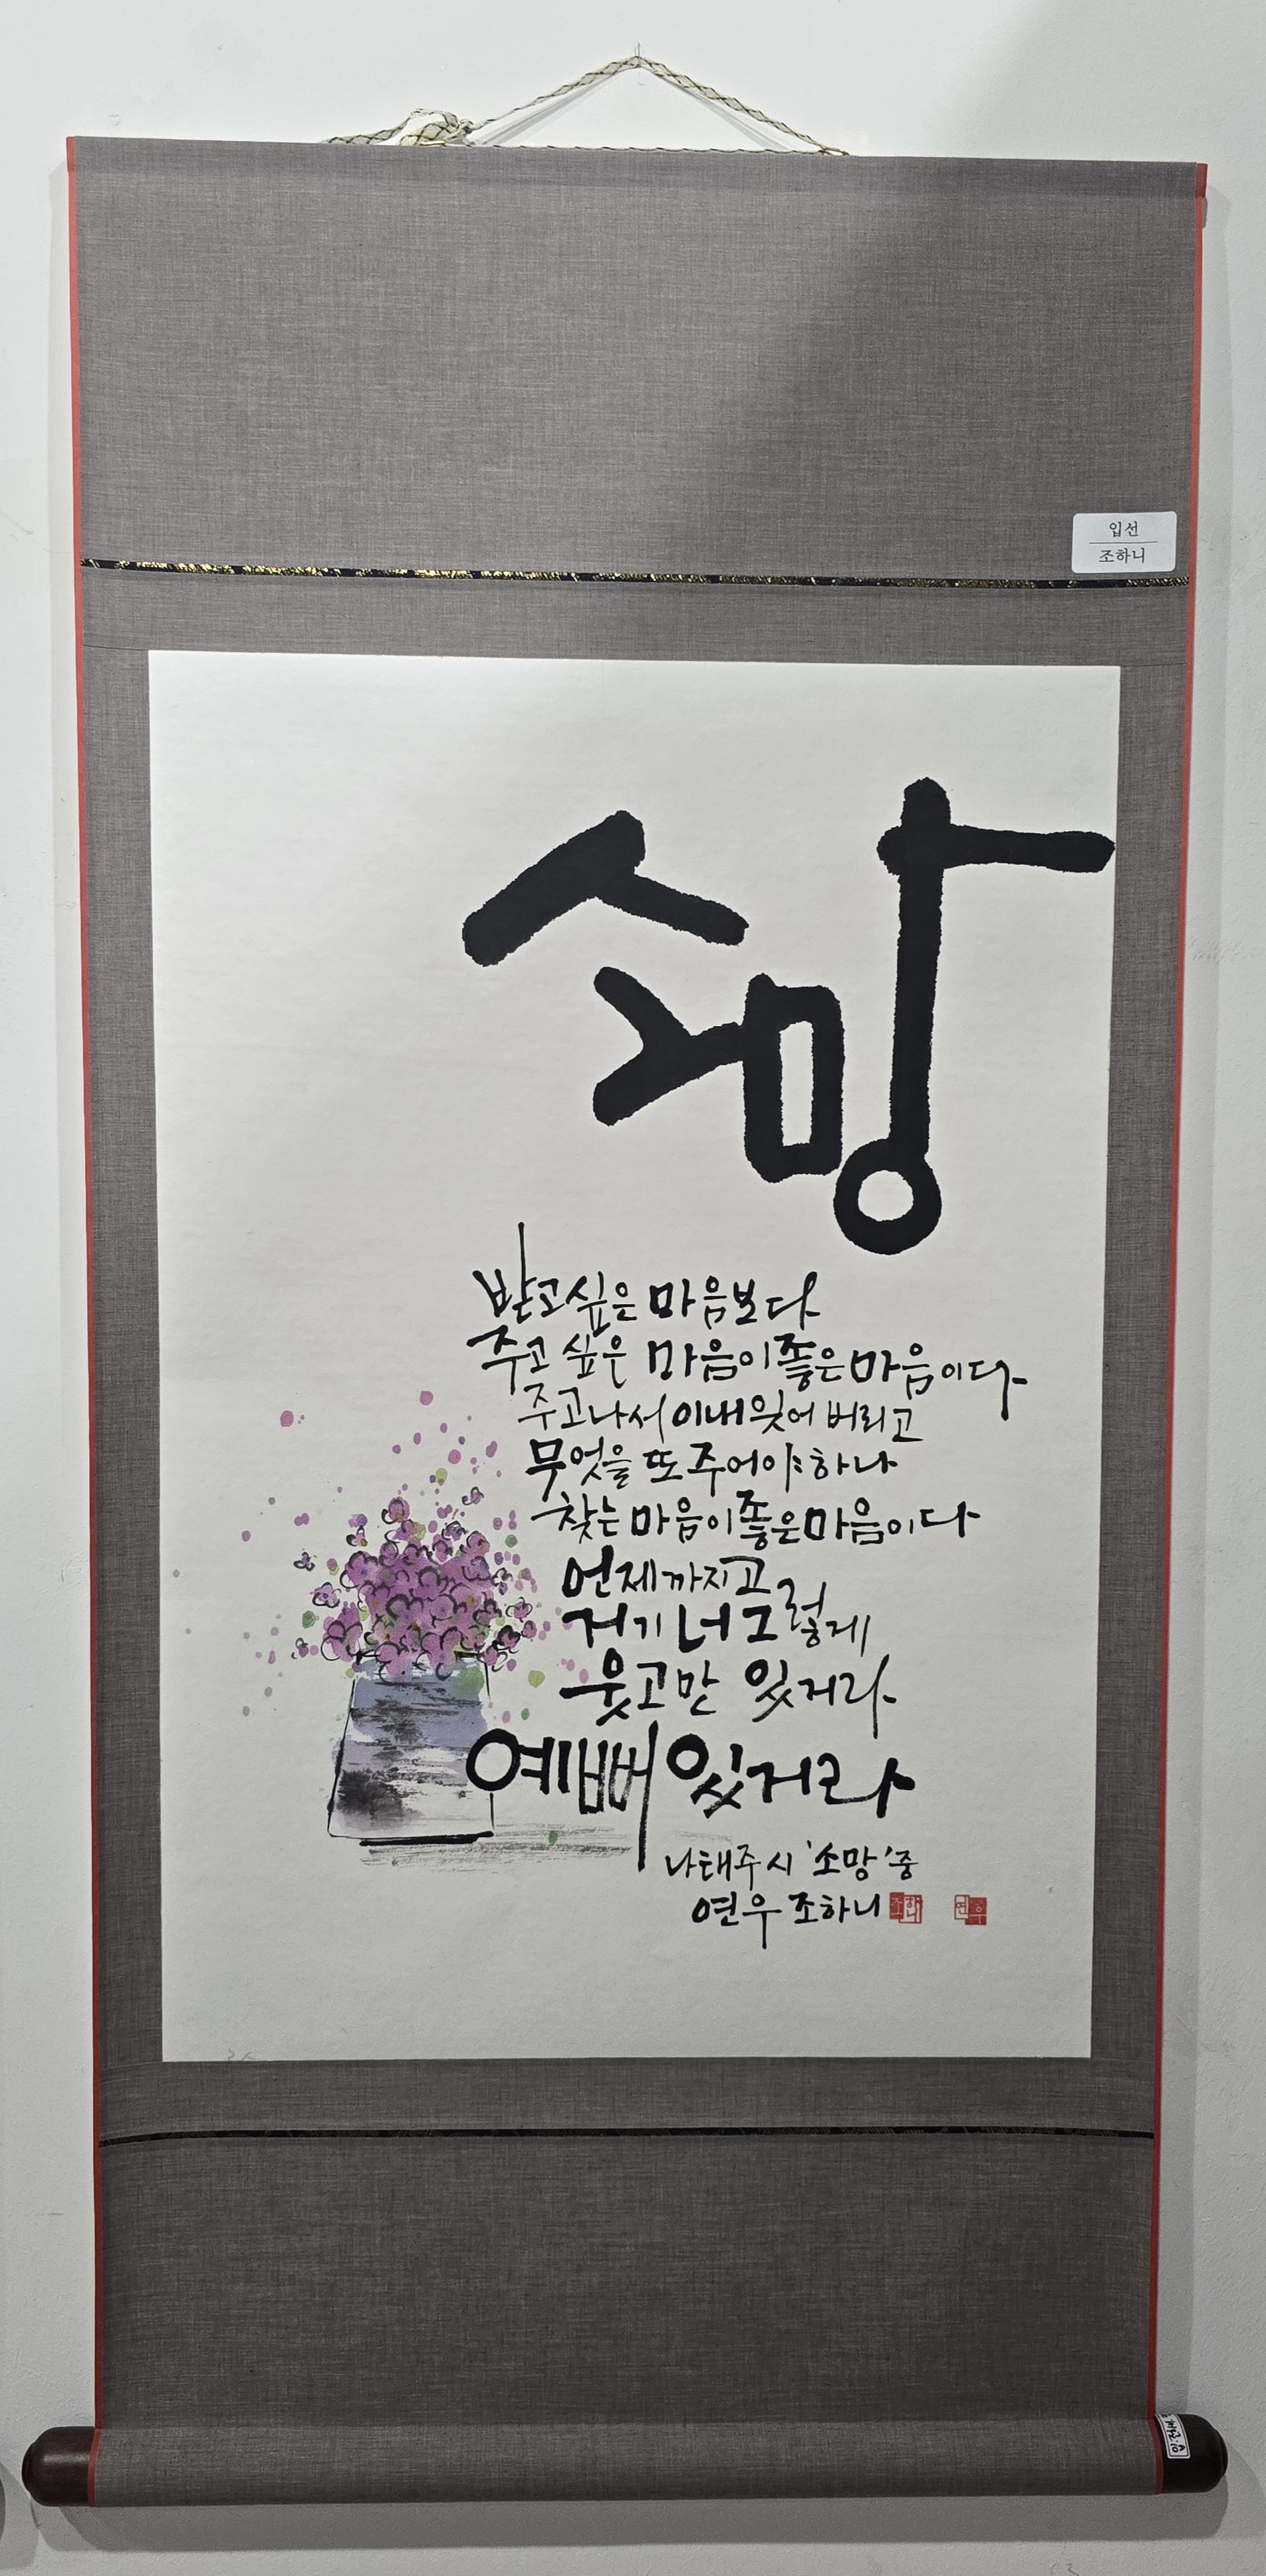 입선
조하니
소망
받고싶은 마음보다
주고 싶은 마음이 좋은 마음이다
주고나서 이내 잊어 버리고
무엇을 또 주어야 하나
찾는 마음이 좋은 마음이다
언제까지고
거기 너 그렇게
웃고만 있거라
예뻐 있거라
나태주 시 '소망' 중
연우 조하니 조하니 연우